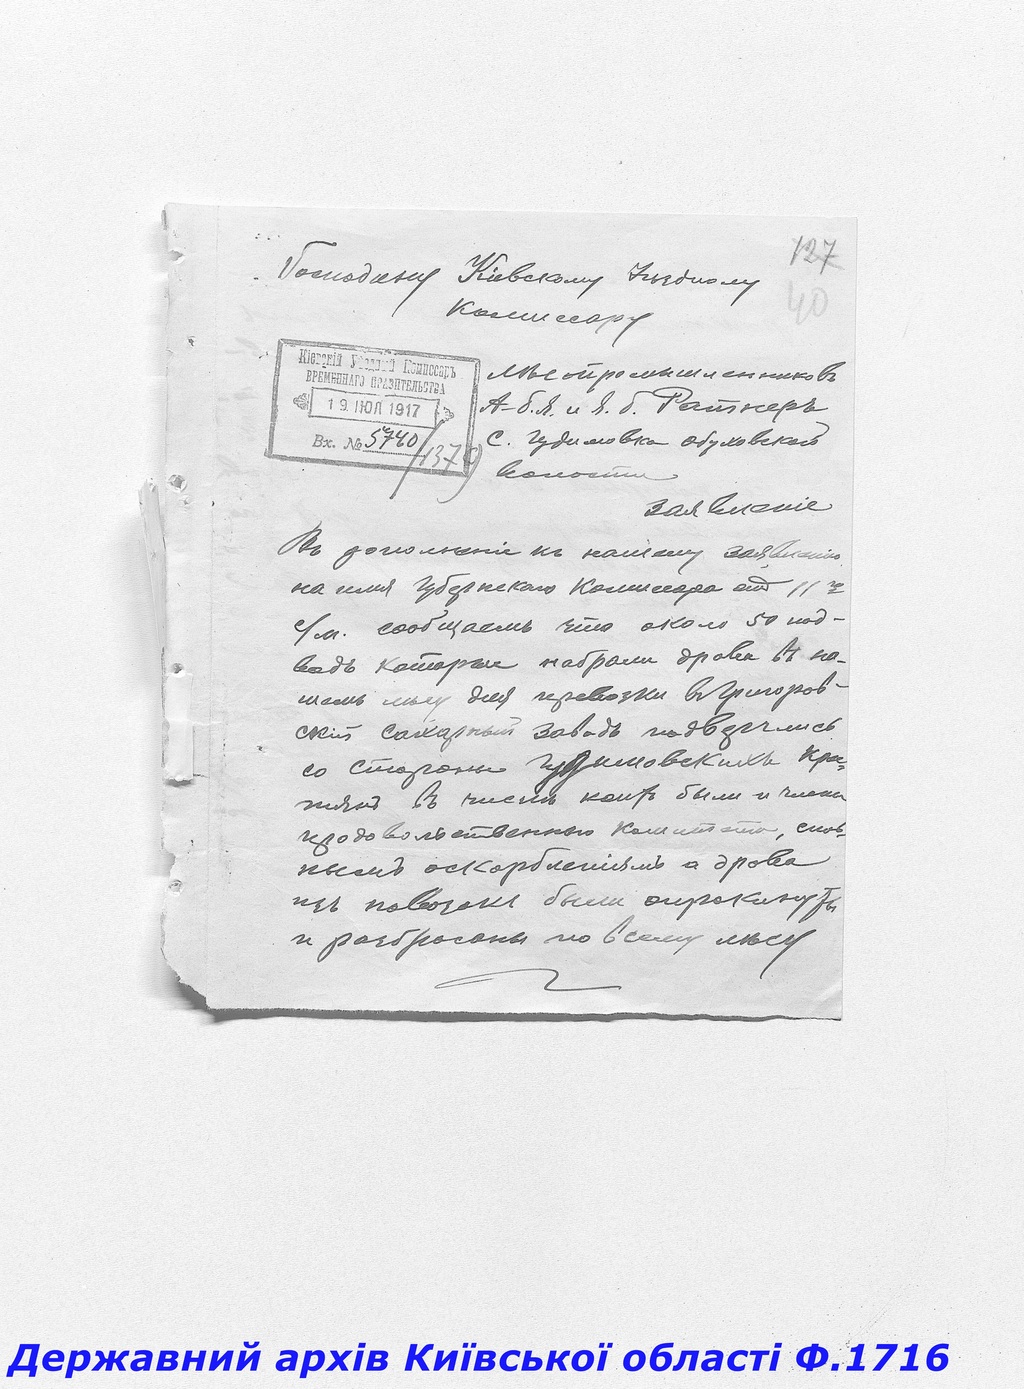 127
40
Господину Кіевскому Уѣздному
Комиссару
Кіевскій Уѣздный Комиссаръ
ВРЕМЕННАГО ПРАВИТЕЛЬСТВА
19 ІЮЛ 1917
Вх. № 5740
лѣсопромышленниковъ
А-б.Я. и Я. б. Ратнеръ
с. Гудимовка Обуховской
волости
Заявленіе
Въ дополненіе къ нашему заявленію
на имя Губернскаго Комиссара отъ 11 го
с/м. сообщаемъ что около 50 под-
водъ которые набрали дрова въ на-
шемъ лѣсу для перевозки въ Григоров-
скій сахарный заводъ подверглись
со стороны Гудимовскихъ Кре-
стянъ въ числѣ коихъ были и члены
продовольственнаго Комитета,
оскорбленіямъ а дрова
изъ повозокъ были опрокинуты
и разбросаны по всему лѣсу
Державний архів Київської області Ф.1716